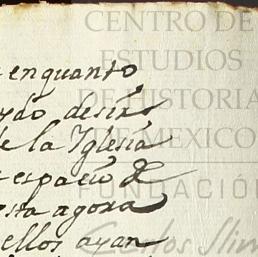 CENTRO DE
ESTUDIOS
DE HISTORIA
DE MEXICO
FUNDACIÓN
Carlos Slim
enquanto
ydo desir
de la Iglesia
espacio de
sta agora
ellos ayan